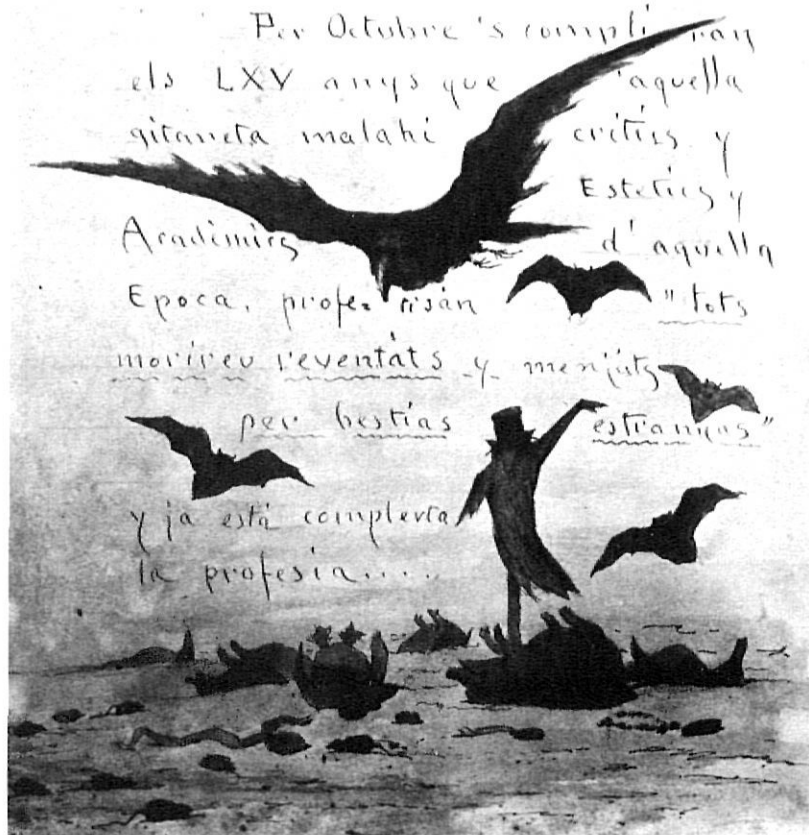 Per Octubre 's compliran
els LXV anys que aquella
gitaneta malahi critics y
Estetics y
Academics d' aquella
Epoca, profetisán "tots
morireu reventáts y menjats
per bestias estranyas"
y ja está complerta
la profesia.....